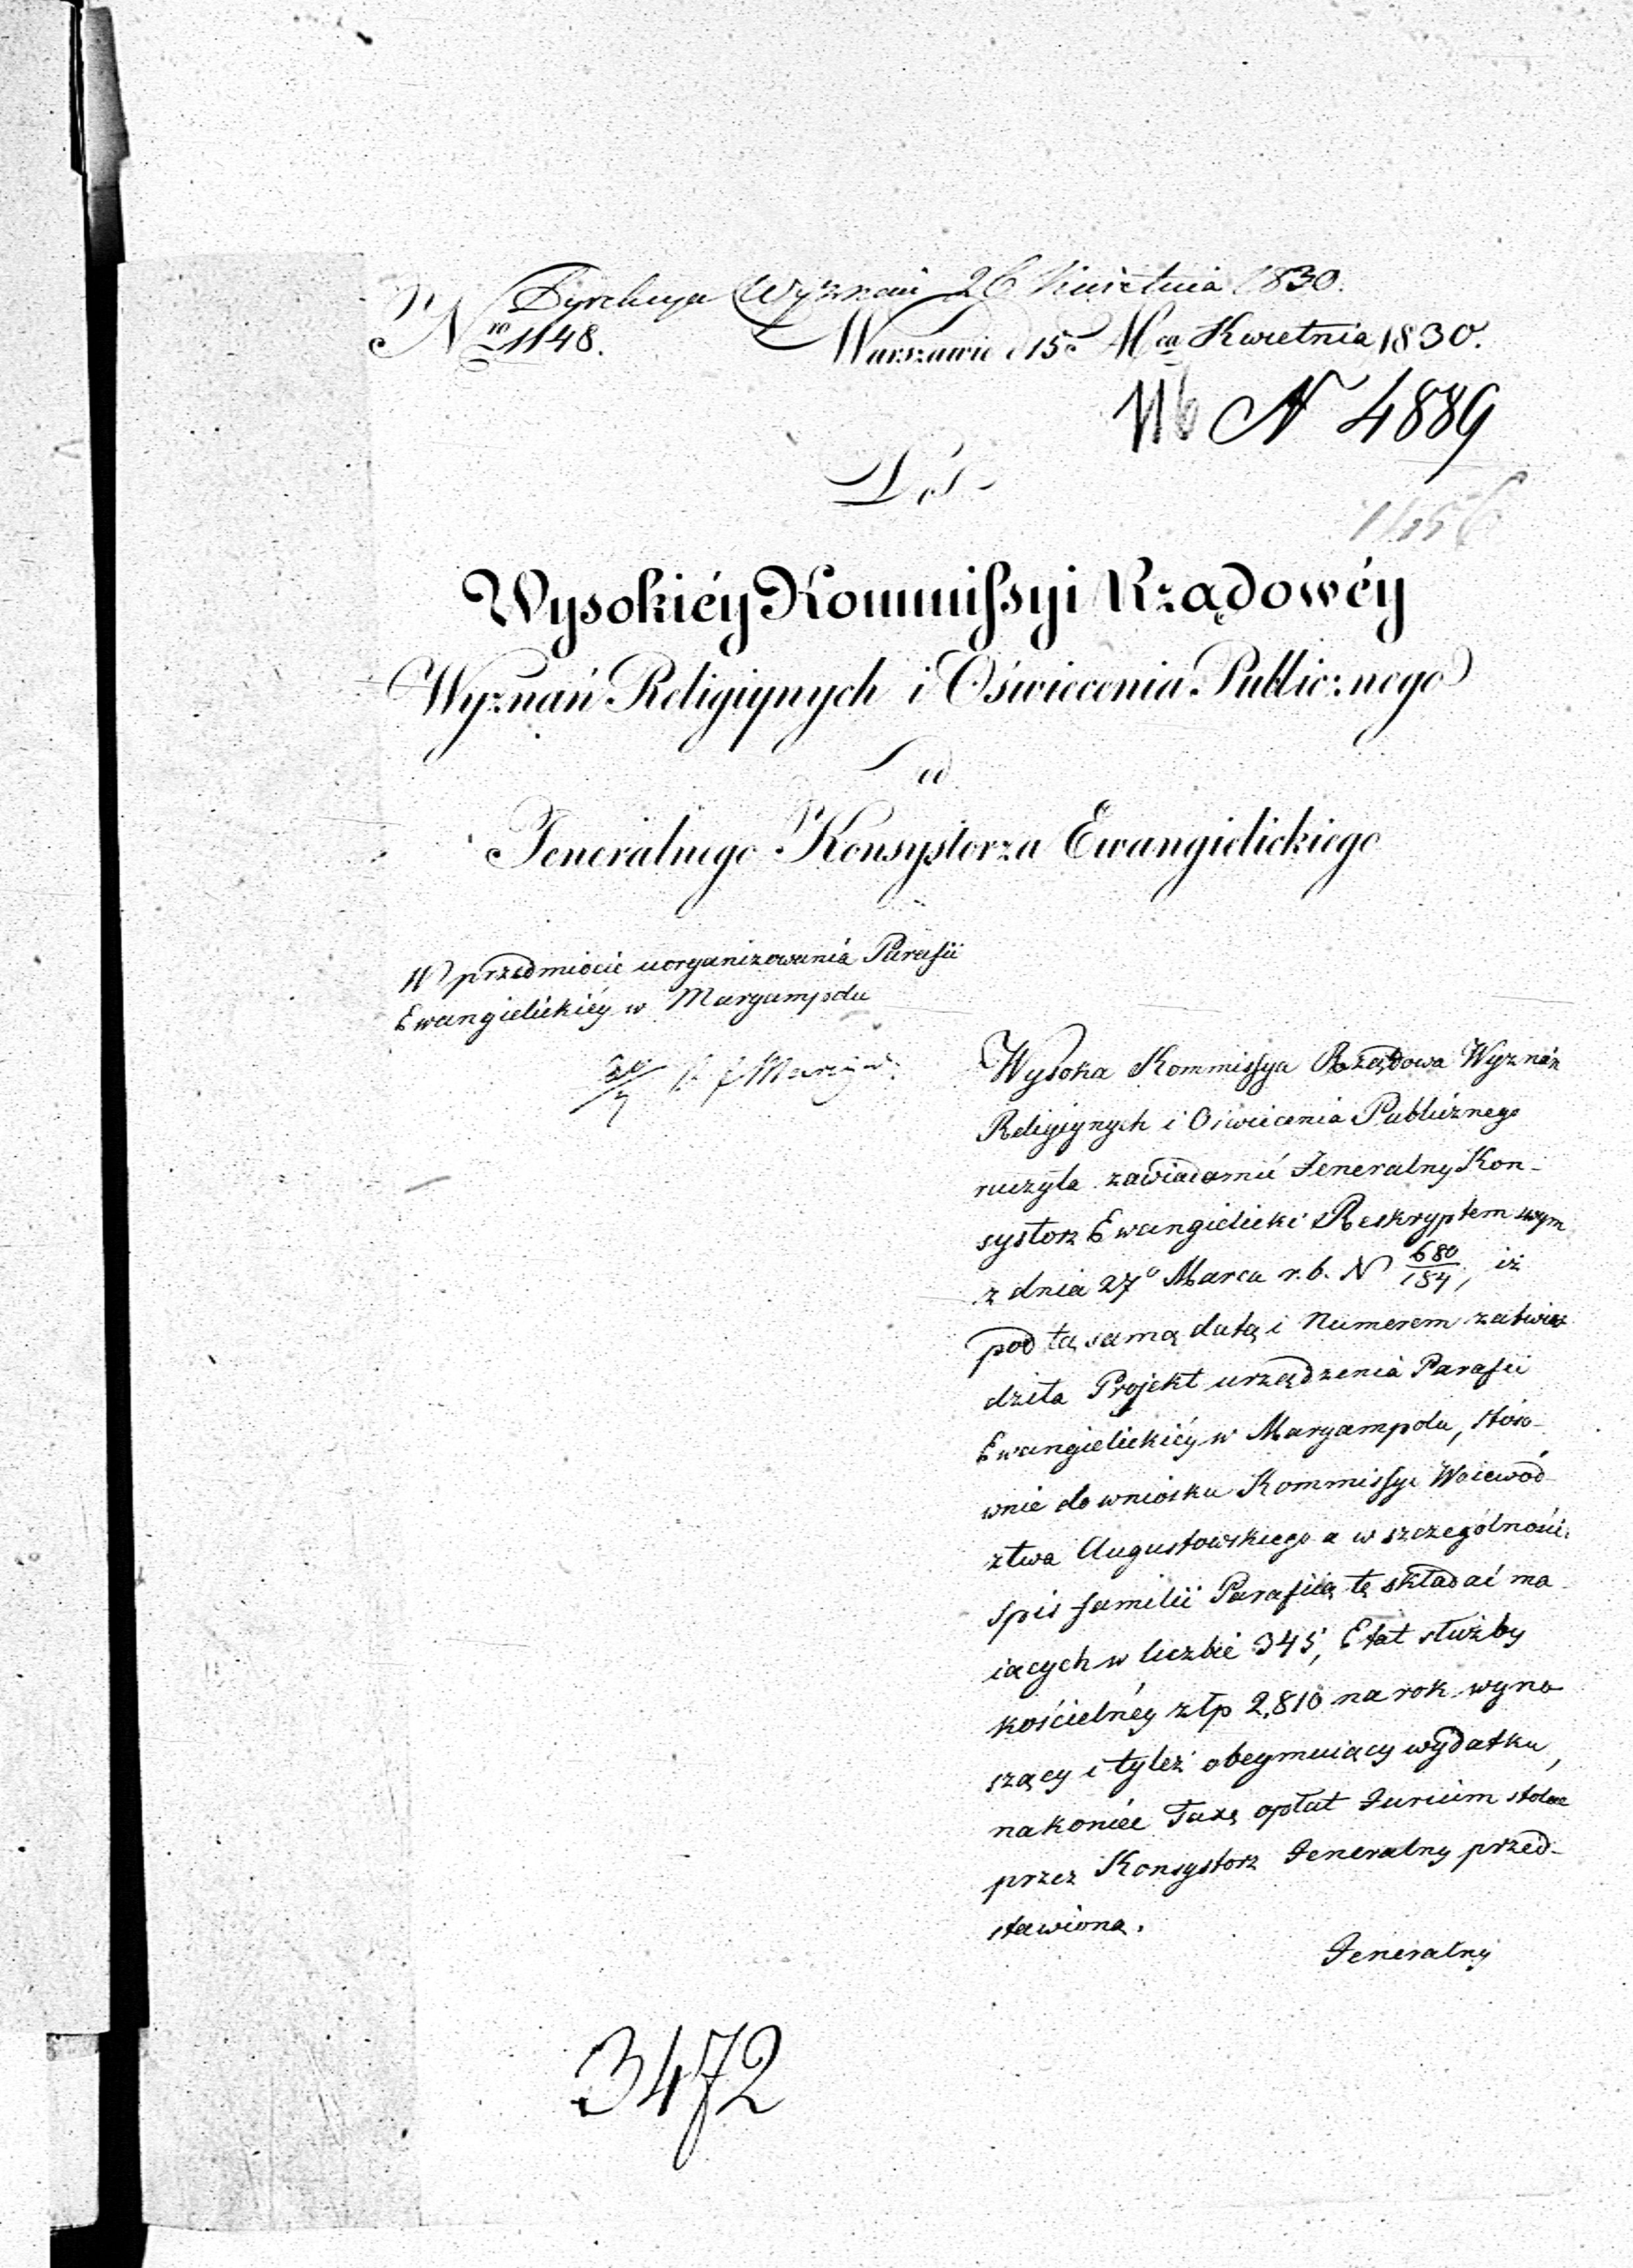 Dyrekcya Wyznań 26 Kwietnia 1830.
Nro 1148. Warszawie d 15o Mca Kwietnia 1830.
N 4889
Do
Wysokiéy Kommissyi Rządowéy
Wyznań Religiynych i Oświecenia Publicznego
Od
Jeneralnego Konsystorza Ewangielickiego
W przedmiocie uorganizowania Parafii
Ewangielickiéy w Maryampolu
Wysoka Kommissya Rządowa Wyznań
Religiynych i Oświecenia Publicznego
raczyła zawiadomić Jeneralny Kon-
systorz Ewangielicki Reskryptem swym
z dnia 27o Marca r. b. N 680/184, iż
pod tą samą datą i Numerem zatwier
dziła Projekt urządzenia Parafii
Ewangielickiéy w Maryampolu, stóso-
wnie do wniosku Kommissyi Woiewód
ztwa Augustowskiego a w szczególności:
spis familii Parafiią tę składać ma
iących w liczbie 345, Etat służby
kościelnéy złp 2,810 na rok wyno
szący i tyleż obeymuiący wydatku,
nakoniec Taxę opłat Jurium stolae
przez Konsystorz Jeneralny przed-
stawioną.
Jeneralny
3472